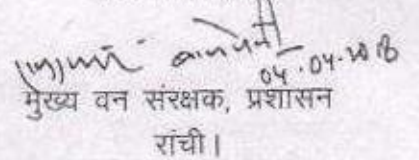 04.04.2018
मुख्य वन संरक्षक, प्रशासन
रांची।